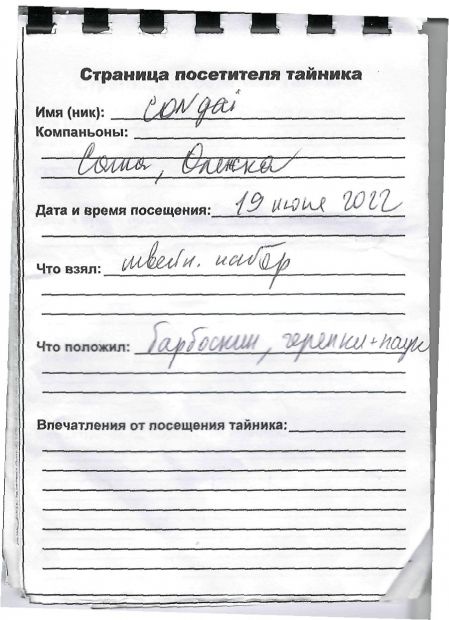 Страница посетителя тайника
Имя (ник): CONgai
Компаньоны:
Соня, Олежка
Дата и время посещения: 19 июня 2022
Что взял: швейн. набор
Что положил: Барбоскин, черепки + паук
Впечатления от посещения тайника: